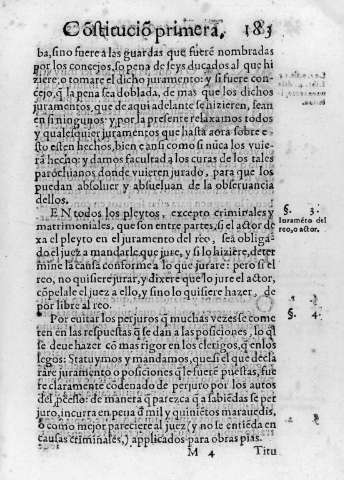 Cõstituciõ primera. 183
ba, sino fuere a las guardas que fuerẽ nombradas
por los concejos, so pena de seys ducados al que hi
ziere, o tomare el dicho juramento: y si fuere con-
cejo, q̃ la pena sea doblada, de mas que los dichos
juramentos, que de aqui adelante se hizieren, sean
en si ningunos: y por la presente relaxamos todos
y qualesquier juramentos que hasta aora sobre e-
sto esten hechos, bien e ansi como si nũca los vuie
rã hecho: y damos facultad a los curas de los tales
parochianos donde vuieren jurado, para que los
puedan absoluer y absueluan de la obseruancia
dellos.
EN todos los pleytos, excepto criminales y
matrimoniales, que son entre partes, si el actor de
xa el pleyto en el juramento del reo, sea obliga-
do el juez a mandarle que jure, y si lo hiziere, deter
mine la causa conforme a lo que jurare: pero si el
reo, no quisiere jurar, y dixere que lo jure el actor,
cõpelale el juez a ello, y sino lo quisere hazer, de
por libre al reo.
§. 3.
Iuramẽto del
reo, o actor.
Por euitar los perjuros q̃ muchas vezes se come
ten en las respuestas q̃ se dan a las posiciones, lo q̃l
se deue hazer cõ mas rigor en los clerigos, q̃ en los
legos: Statuymos y mandamos, que si el que decla
rare juramento o posiciones q̃ le fuerẽ puestas, fue
re claramente cõdenado de perjuro por los autos
del p̃cesso: de manera q̃ parezca q̃ a sabiẽdas se per
juro, incurra en pena d̃ mil y quiniẽtos marauedis,
o como mejor pareciere al juez (y no se entiẽda en
causas criminales,) applicados para obras pias.
§. 4.
M 4 Titu